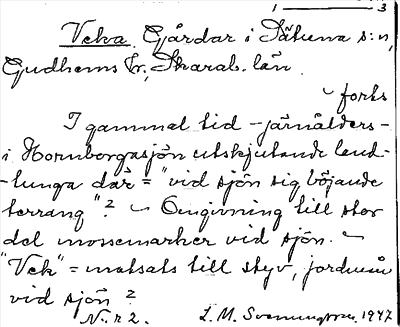 1 — 3
Veka. Gårdar i Sätuna s:n,
Gudhems hr, Skarab. län.
~ forts
I gammal tid - järnålders -
i Hornborgasjön utskjutande land-
-tunga där = "vid sjön sig böjande
terräng"? ~ Omgivning till stor
del mossemarker vid sjön. ~
"Vek" = motsats till styv, jordmån
vid sjön ?
N:r 2. L. M. Svenungsson. 1947